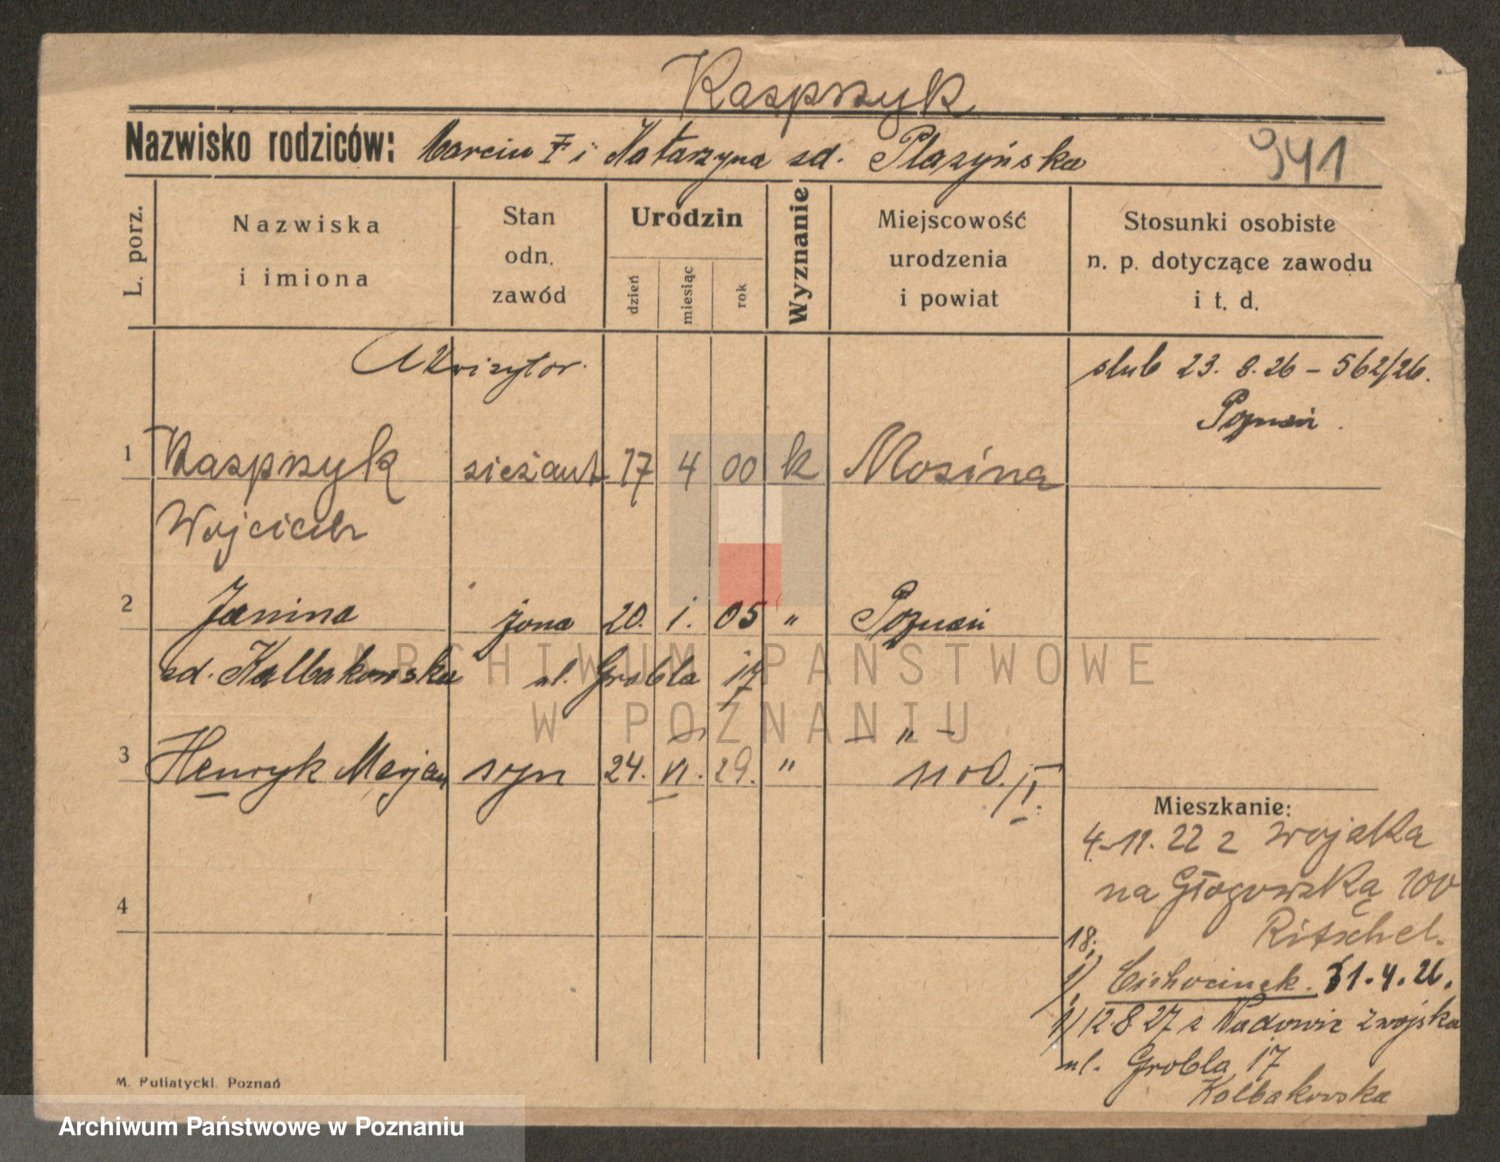 Kasprzyk
Nazwisko rodziców: Marcin i Katarzyna zd. Plazyńska
941
L. porz.
Nazwiska
i imiona
Stan
odn.
zawód
Urodzin
dzień
miesiąc
rok
Wyznanie
Miejscowość
urodzenia
i powiat
Stosunki osobiste
n. p. dotyczące zawodu
i t. d.
Akwizytor.
slub 23. 8. 26 - 562/26.
Poznań.
1 Kasprzyk sierżant 17 4 00 k Mosina
Wojciech
2 Janina żona 20. i. 05 " Poznań
zd. Kolbakowska ul. Grobla 17
3 Henryk Marjan syn 24. VI. 29. " - " -
11 od. /I.
4
Mieszkanie:
4.11.22 z wojska
na Głogowską 100
Ritschel.
18;
1) Ciechocinek. 31.4.26.
1) 12.8.27 z Wadowic z wojska
ul. Grobla 17
Kolbakowska
M. Putiatycki. Poznań
ARCHIWUM PAŃSTWOWE
W POZNANIU
Archiwum Państwowe w Poznaniu